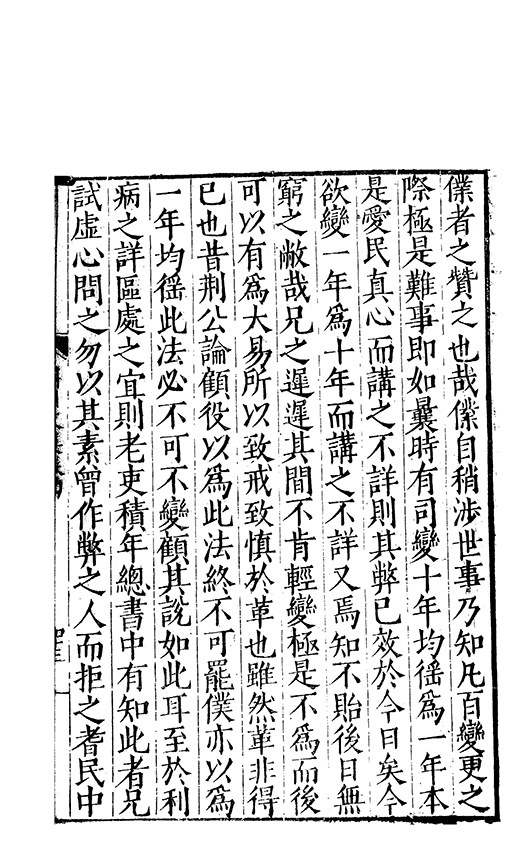 僕者之贊之也哉僕自稍涉世事乃知凡百變更之
際極是難事即如曩時有司變十年均徭爲一年本
是愛民真心而講之不詳則其弊已效於今日矣今
欲變一年爲十年而講之不詳又焉知不貽後日無
窮之敝哉兄之遲遲其間不肯輕變極是不爲而後
可以有爲大易所以致戒致慎於革也雖然革非得
已也昔荆公論顧役以爲此法終不可罷僕亦以爲
一年均徭此法必不可不變顧其說如此耳至於利
病之詳區處之宜則老吏積年總書中有知此者兄
試虛心問之勿以其素曾作弊之人而拒之耆民中